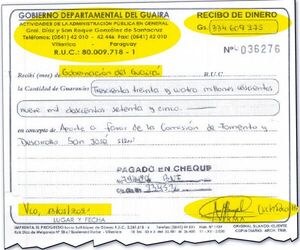 GOBIERNO DEPARTAMENTAL DEL GUAIRA
ACTIVIDADES DE LA ADMINISTRACIÓN PÚBLICA EN GENERAL
Gral. Díaz y San Roque González de Santacruz
Teléfonos: (0541) 42 010 - 42 446 Fax: (0541) 42 010
Villarrica - Paraguay
R.U.C.: 80.009.718 - 1
RECIBO DE DINERO
Gs. 334.609.275
Nº 036276
Recibí (mos) de Gobernación del Guairá R.U.C.
la Cantidad de Guaraníes Trescientos treinta y cuatro millones seiscientos
nueve mil doscientos setenta y cinco
en concepto de Aporte a favor de la Comisión de Fomento y
Desarrollo San José
PAGADO EN CHEQUE
Vca,
LUGAR Y FECHA
FIRMA
ORIGINAL BLANCO: CLIENTE